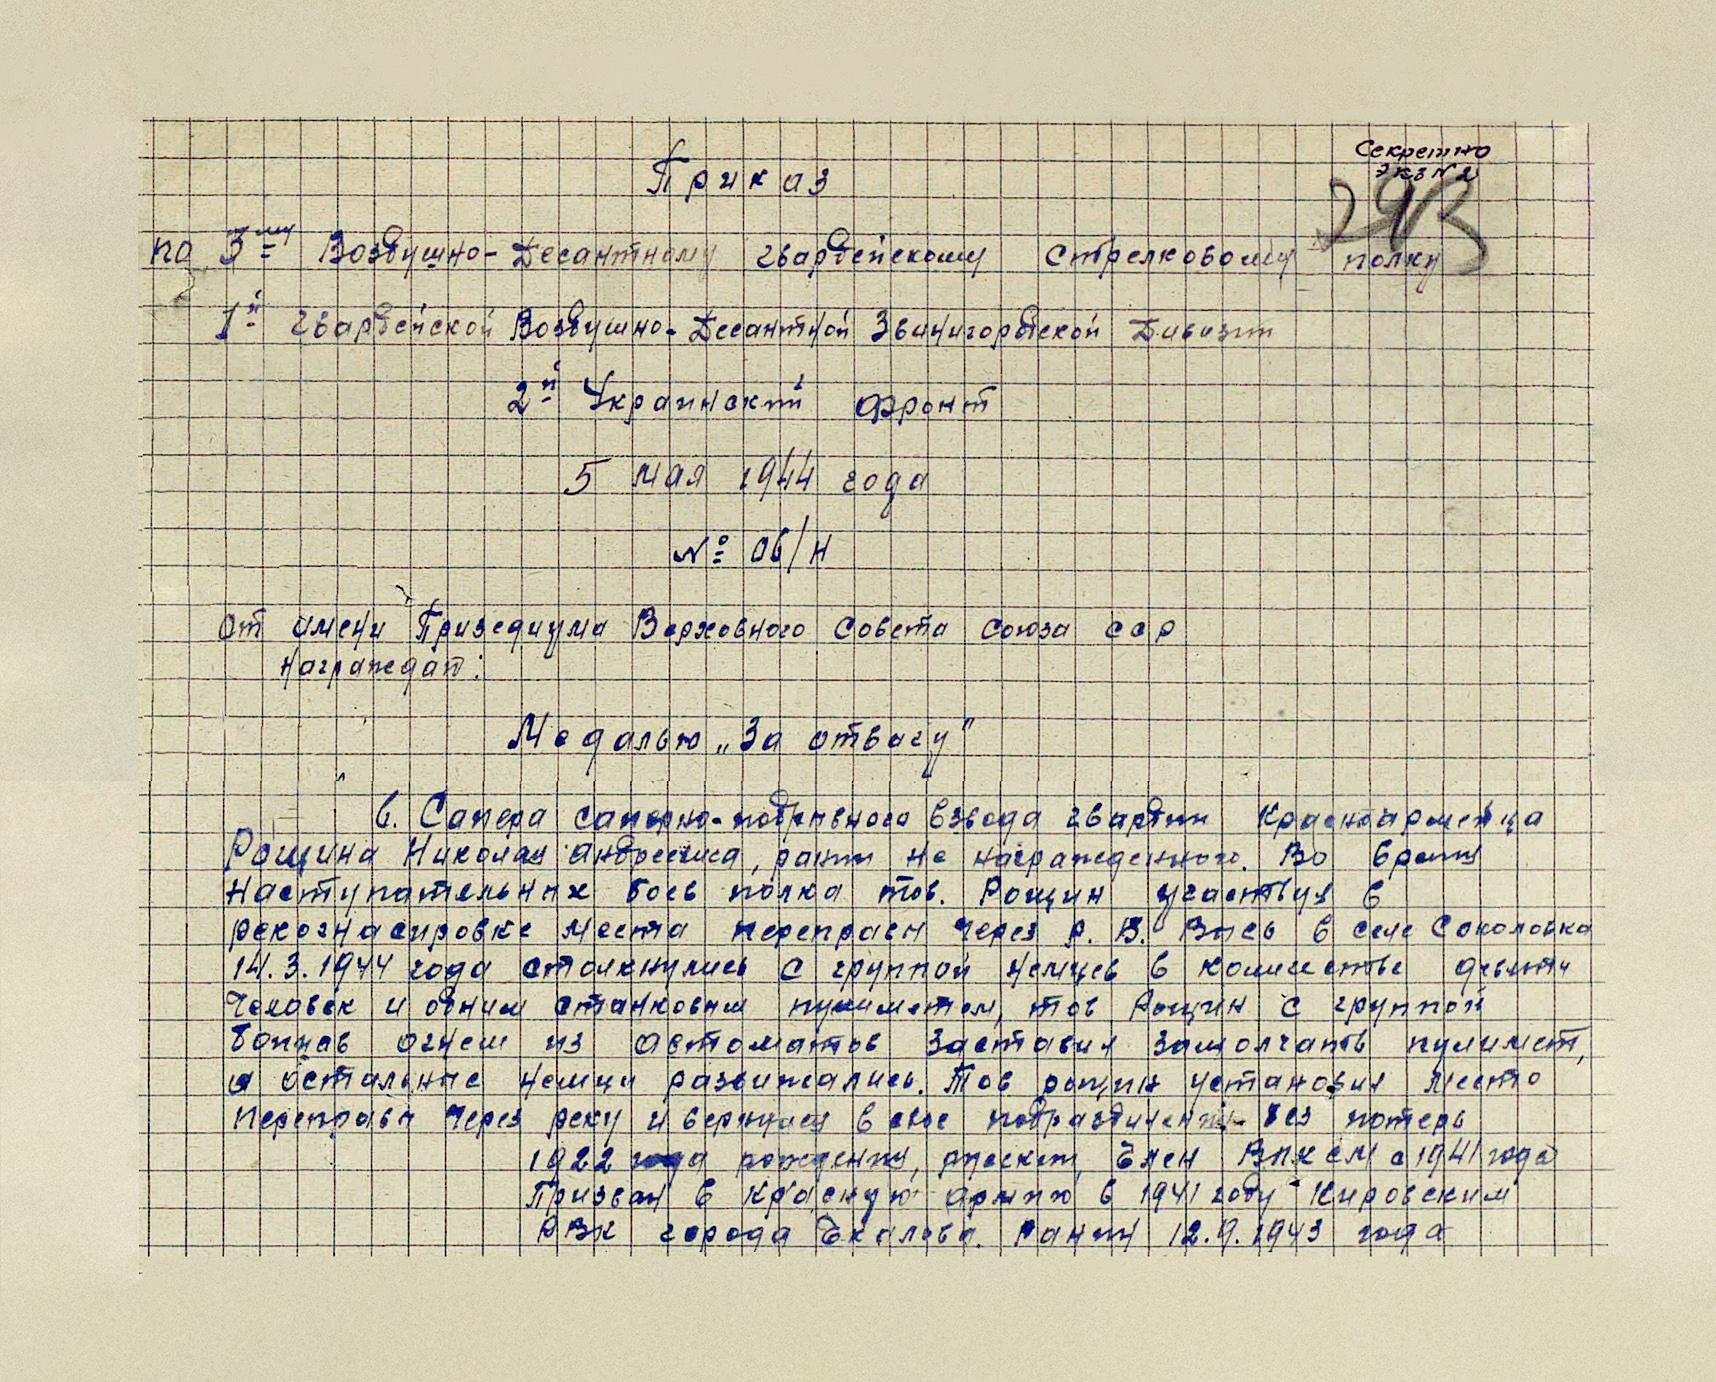 Секретно
Экз № 2
293
Приказ
по 3му Воздушно-Десантному гвардейскому стрелковому полку
1й гвардейской Воздушно-Десантной Звинигородской Дивизии
2й Украинский фронт
5 мая 1944 года
№ 06/н
От имени Призедиума Верховного Совета Союза ССР
Награждаю:
Медалью „За отвагу"
6. Сапера саперно-подрывного взвода гвардии Красноармейца
Рощина Николая Андреевича, ранее не награжденного. Во время
наступательных боев полка тов. Рощин участвуя в
рекогнасировке места переправы через р. В. Высь в селе Соколовка
14.3.1944 года столкнулись с группой немцев в количестве девяти
человек и одним станковым пулиметом, тов Рощин с группой
бойцов огнем из автоматов заставил замолчать пулимет,
а остальные немцы разбижались. Тов Рощин установил место
переправы через реку и вернулся в свое подразделение без потерь
1922 года рождения, русский, Член ВЛКСМ с 1941 года
Призван в красную армию в 1941 году Кировским
РВК города Чкалова. Ранен 12.9.1943 года